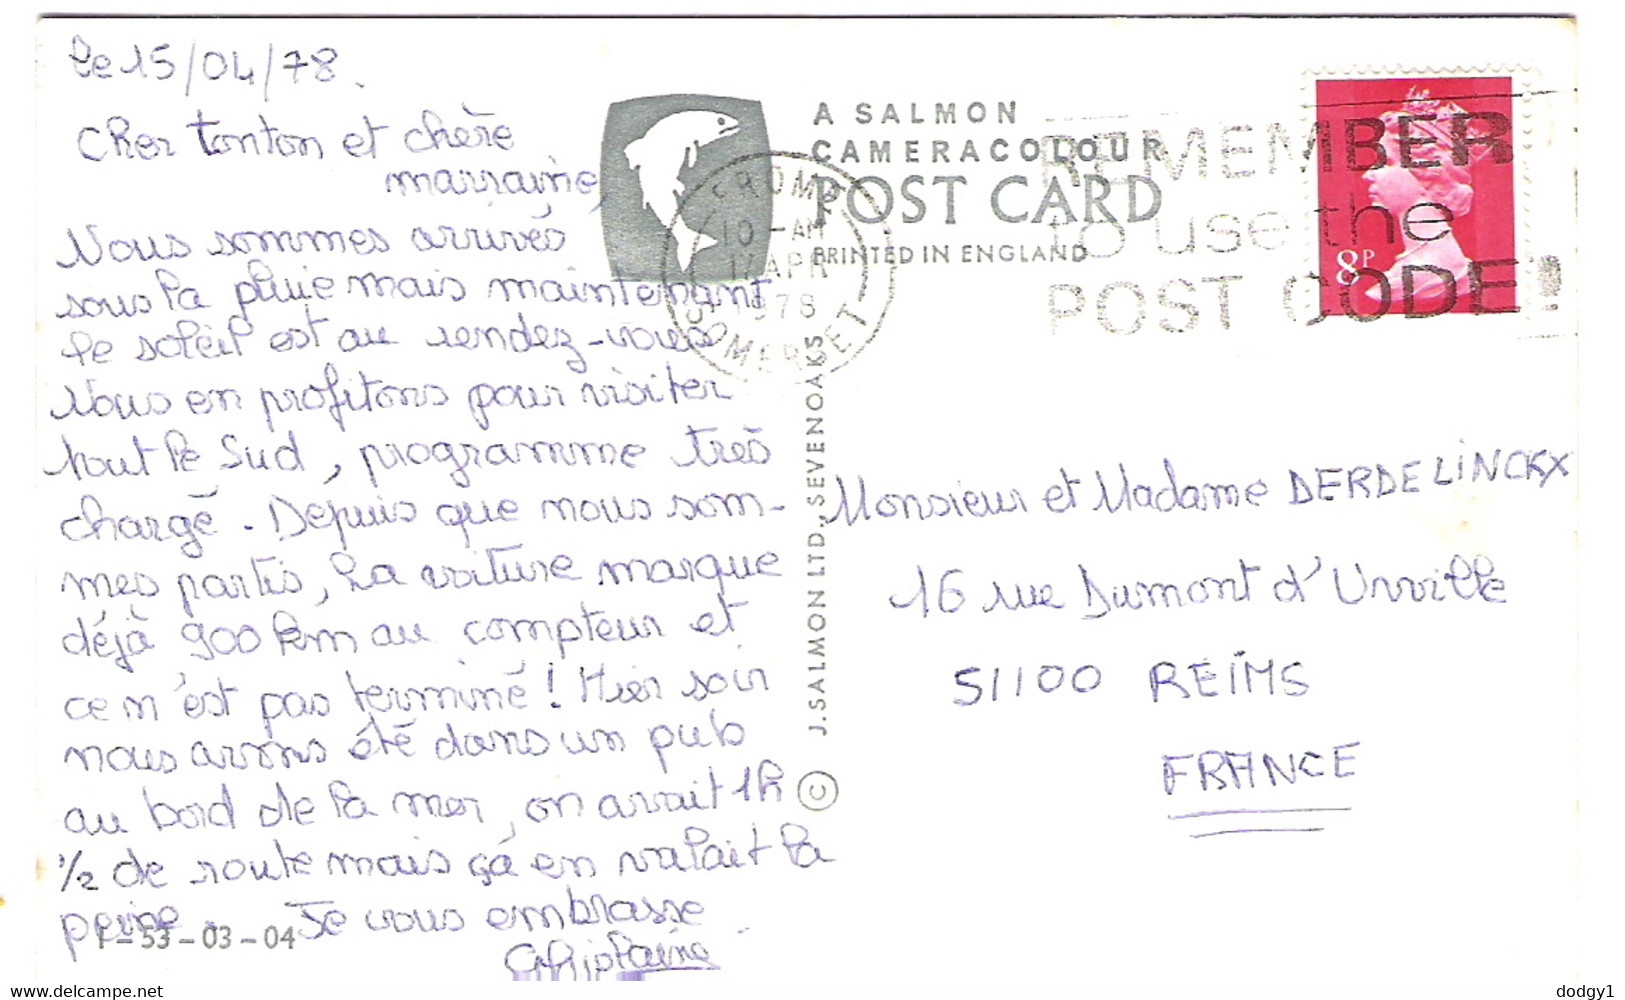 le 15/04/78.
Cher tonton et chère
marraine,
Nous sommes arrivés
sous la pluie mais maintenant
le soleil est au rendez-vous
Nous en profitons pour visiter
tout le Sud, programme très
chargé. Depuis que nous som-
mes partis, la voiture marque
déjà 900 km au compteur et
ce n'est pas terminé! Hier soir
nous avons été dans un pub
au bord de la mer, on avait 1h
1/2 de route mais çà en valait la
peine. Je vous embrasse
Ghislaine
1-53-03-04
A SALMON
CAMERACOLOUR
POST CARD
PRINTED IN ENGLAND
10-AM
APR
1978
SOMERSET
REMEMBER
to use the
POST CODE!
8P
J. SALMON LTD., SEVENOAKS ©
Monsieur et Madame DERDELINCKX
16 rue Dumont d'Urville
51100 REIMS
FRANCE
dodgy1
www.delcampe.net